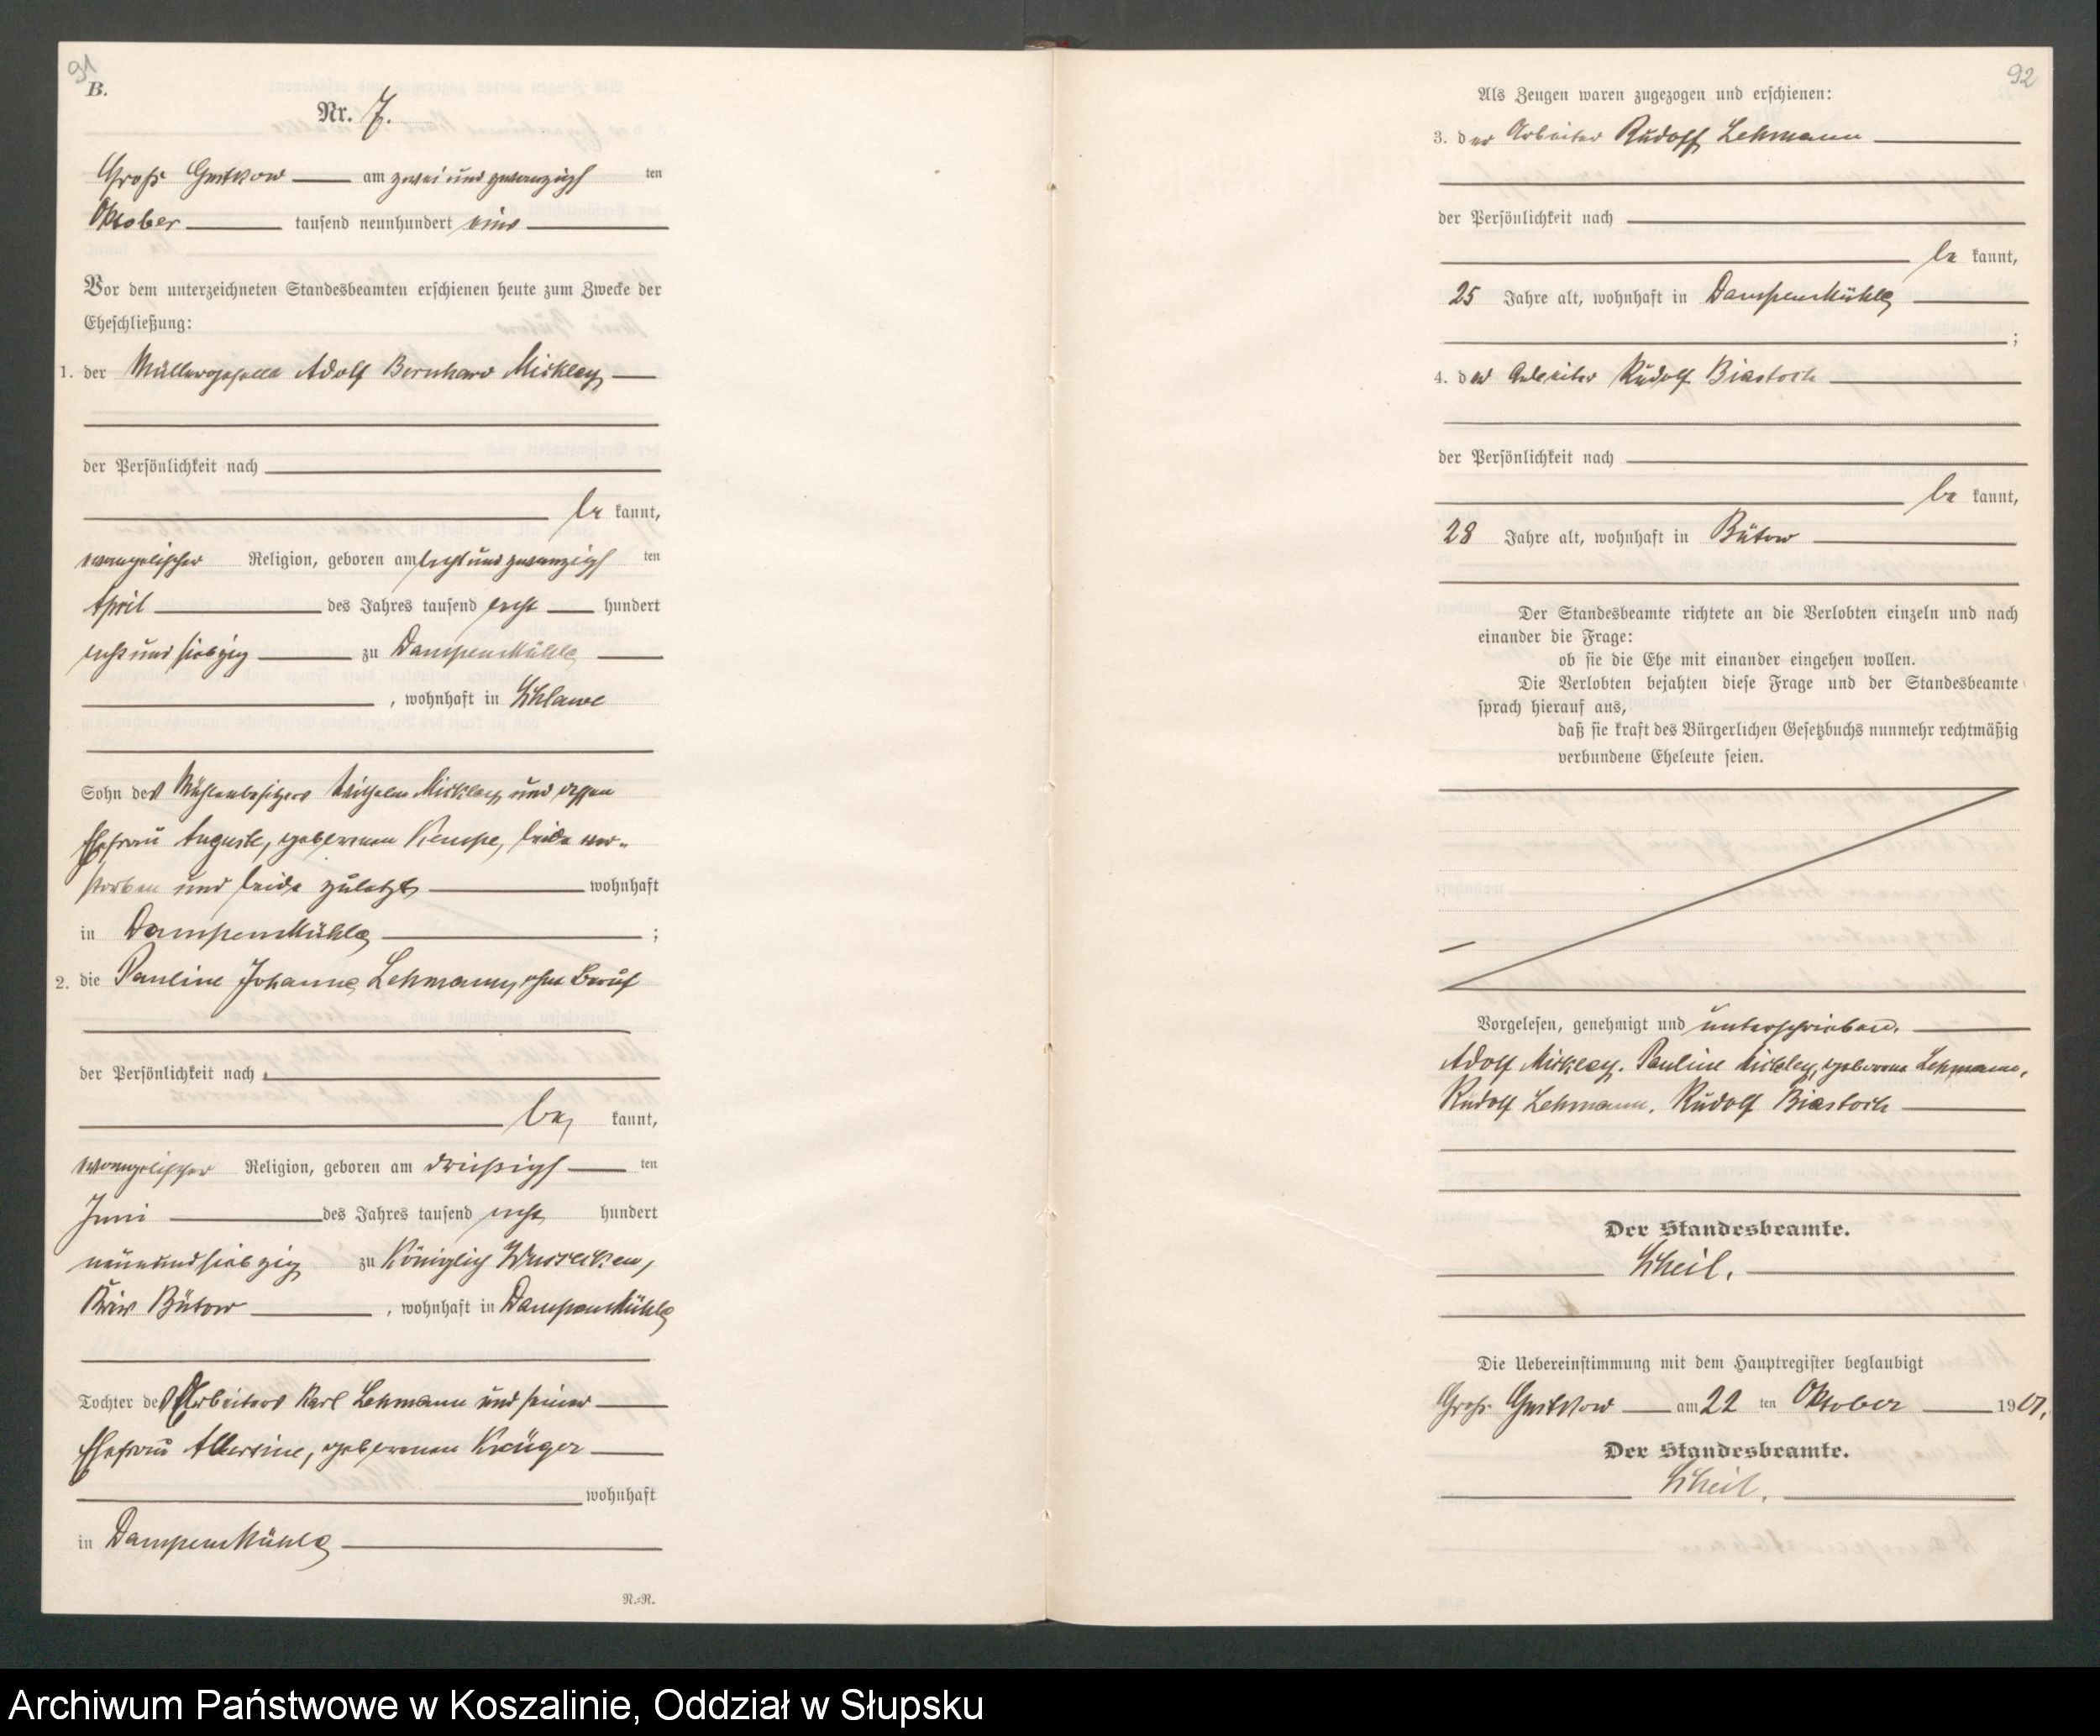 91
B.
Nr. 7.
Groß Gustkow am zwei und zwanzigsten
Oktober tausend neunhundert eins
Vor dem unterzeichneten Standesbeamten erschienen heute zum Zwecke der
Eheschließung:
1. der Müllergeselle Adolf Bernhard Mickley
der Persönlichkeit nach
be kannt,
evangelischer Religion, geboren am acht und zwanzigsten
April des Jahres tausend acht hundert
acht und siebzig zu Dampenmühle
, wohnhaft in Schlawe
Sohn des Mühlenbesitzers Wilhelm Mickley und dessen
Ehefrau Auguste, geborenen Kempe, beide ver-
storben und beide zuletzt wohnhaft
in Dampenmühle ;
2. die Pauline Johanne Lehmann, ohne Beruf
der Persönlichkeit nach
be kannt,
evangelischer Religion, geboren am dreißigsten
Juni des Jahres tausend acht hundert
neun und siebzig zu Königlich Wussecken,
Kreis Bütow , wohnhaft in Dampenmühle
Tochter des Arbeiters Karl Lehmann und seiner
Ehefrau Albertine, geborenen Krüger
wohnhaft
in Dampenmühle
N.=N.
92
Als Zeugen waren zugezogen und erschienen:
3. der Arbeiter Rudolf Lehmann
der Persönlichkeit nach
be kannt,
25 Jahre alt, wohnhaft in Dampenmühle
;
4. der Arbeiter Rudolf Biastoch
der Persönlichkeit nach
be kannt,
28 Jahre alt, wohnhaft in Bütow
Der Standesbeamte richtete an die Verlobten einzeln und nach
einander die Frage:
ob sie die Ehe mit einander eingehen wollen.
Die Verlobten bejahten diese Frage und der Standesbeamte
sprach hierauf aus,
daß sie kraft des Bürgerlichen Gesetzbuchs nunmehr rechtmäßig
verbundene Eheleute seien.
Vorgelesen, genehmigt und unterschrieben.
Adolf Mickley. Pauline Mickley, geborene Lehmann.
Rudolf Lehmann. Rudolf Biastoch
Der Standesbeamte.
Scheil.
Die Uebereinstimmung mit dem Hauptregister beglaubigt
Groß Gustkow am 22 ten Oktober 1901.
Der Standesbeamte.
Scheil.
Archiwum Państwowe w Koszalinie, Oddział w Słupsku